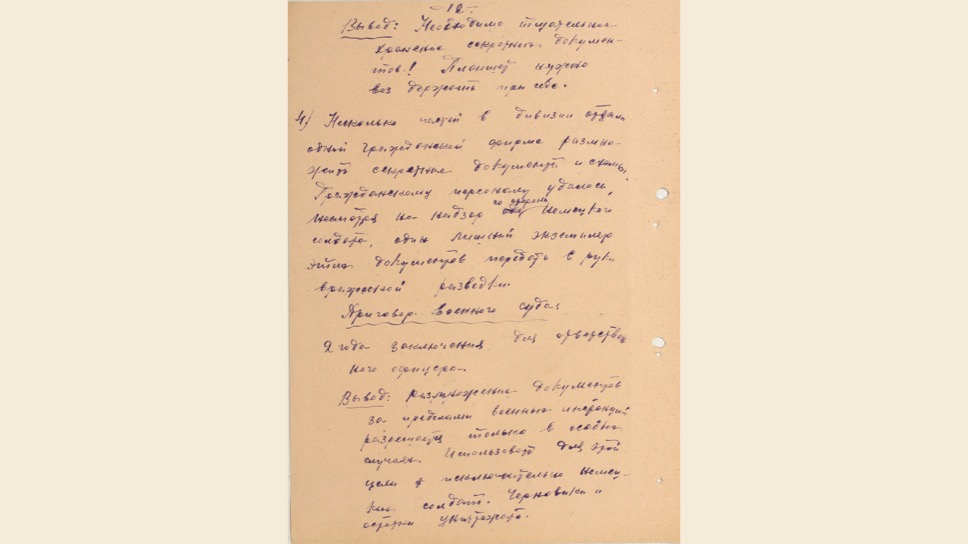 - 12 -
Вывод: Необходимо тщательное
хранение секретных докумен-
тов! Планшет нужно
воз держать при себе.
4) Несколько частей в дивизии отдали
одной гражданской фирме размно-
жить секретные документы и схемы.
Гражданскому персоналу удалось,
несмотря на надзор со стороны немецкого
солдата, один лишний экземпляр
этих документов передать в руки
вражеской разведки.
Приговор военного суда:
2 года заключения для ответствен
ного офицера.
Вывод: размножение документов
за пределами военных инстанций
разрешать только в особых
случаях. Использовать для этой
цели исключительно немец-
ких солдат. Черновики и
остатки уничтожать.